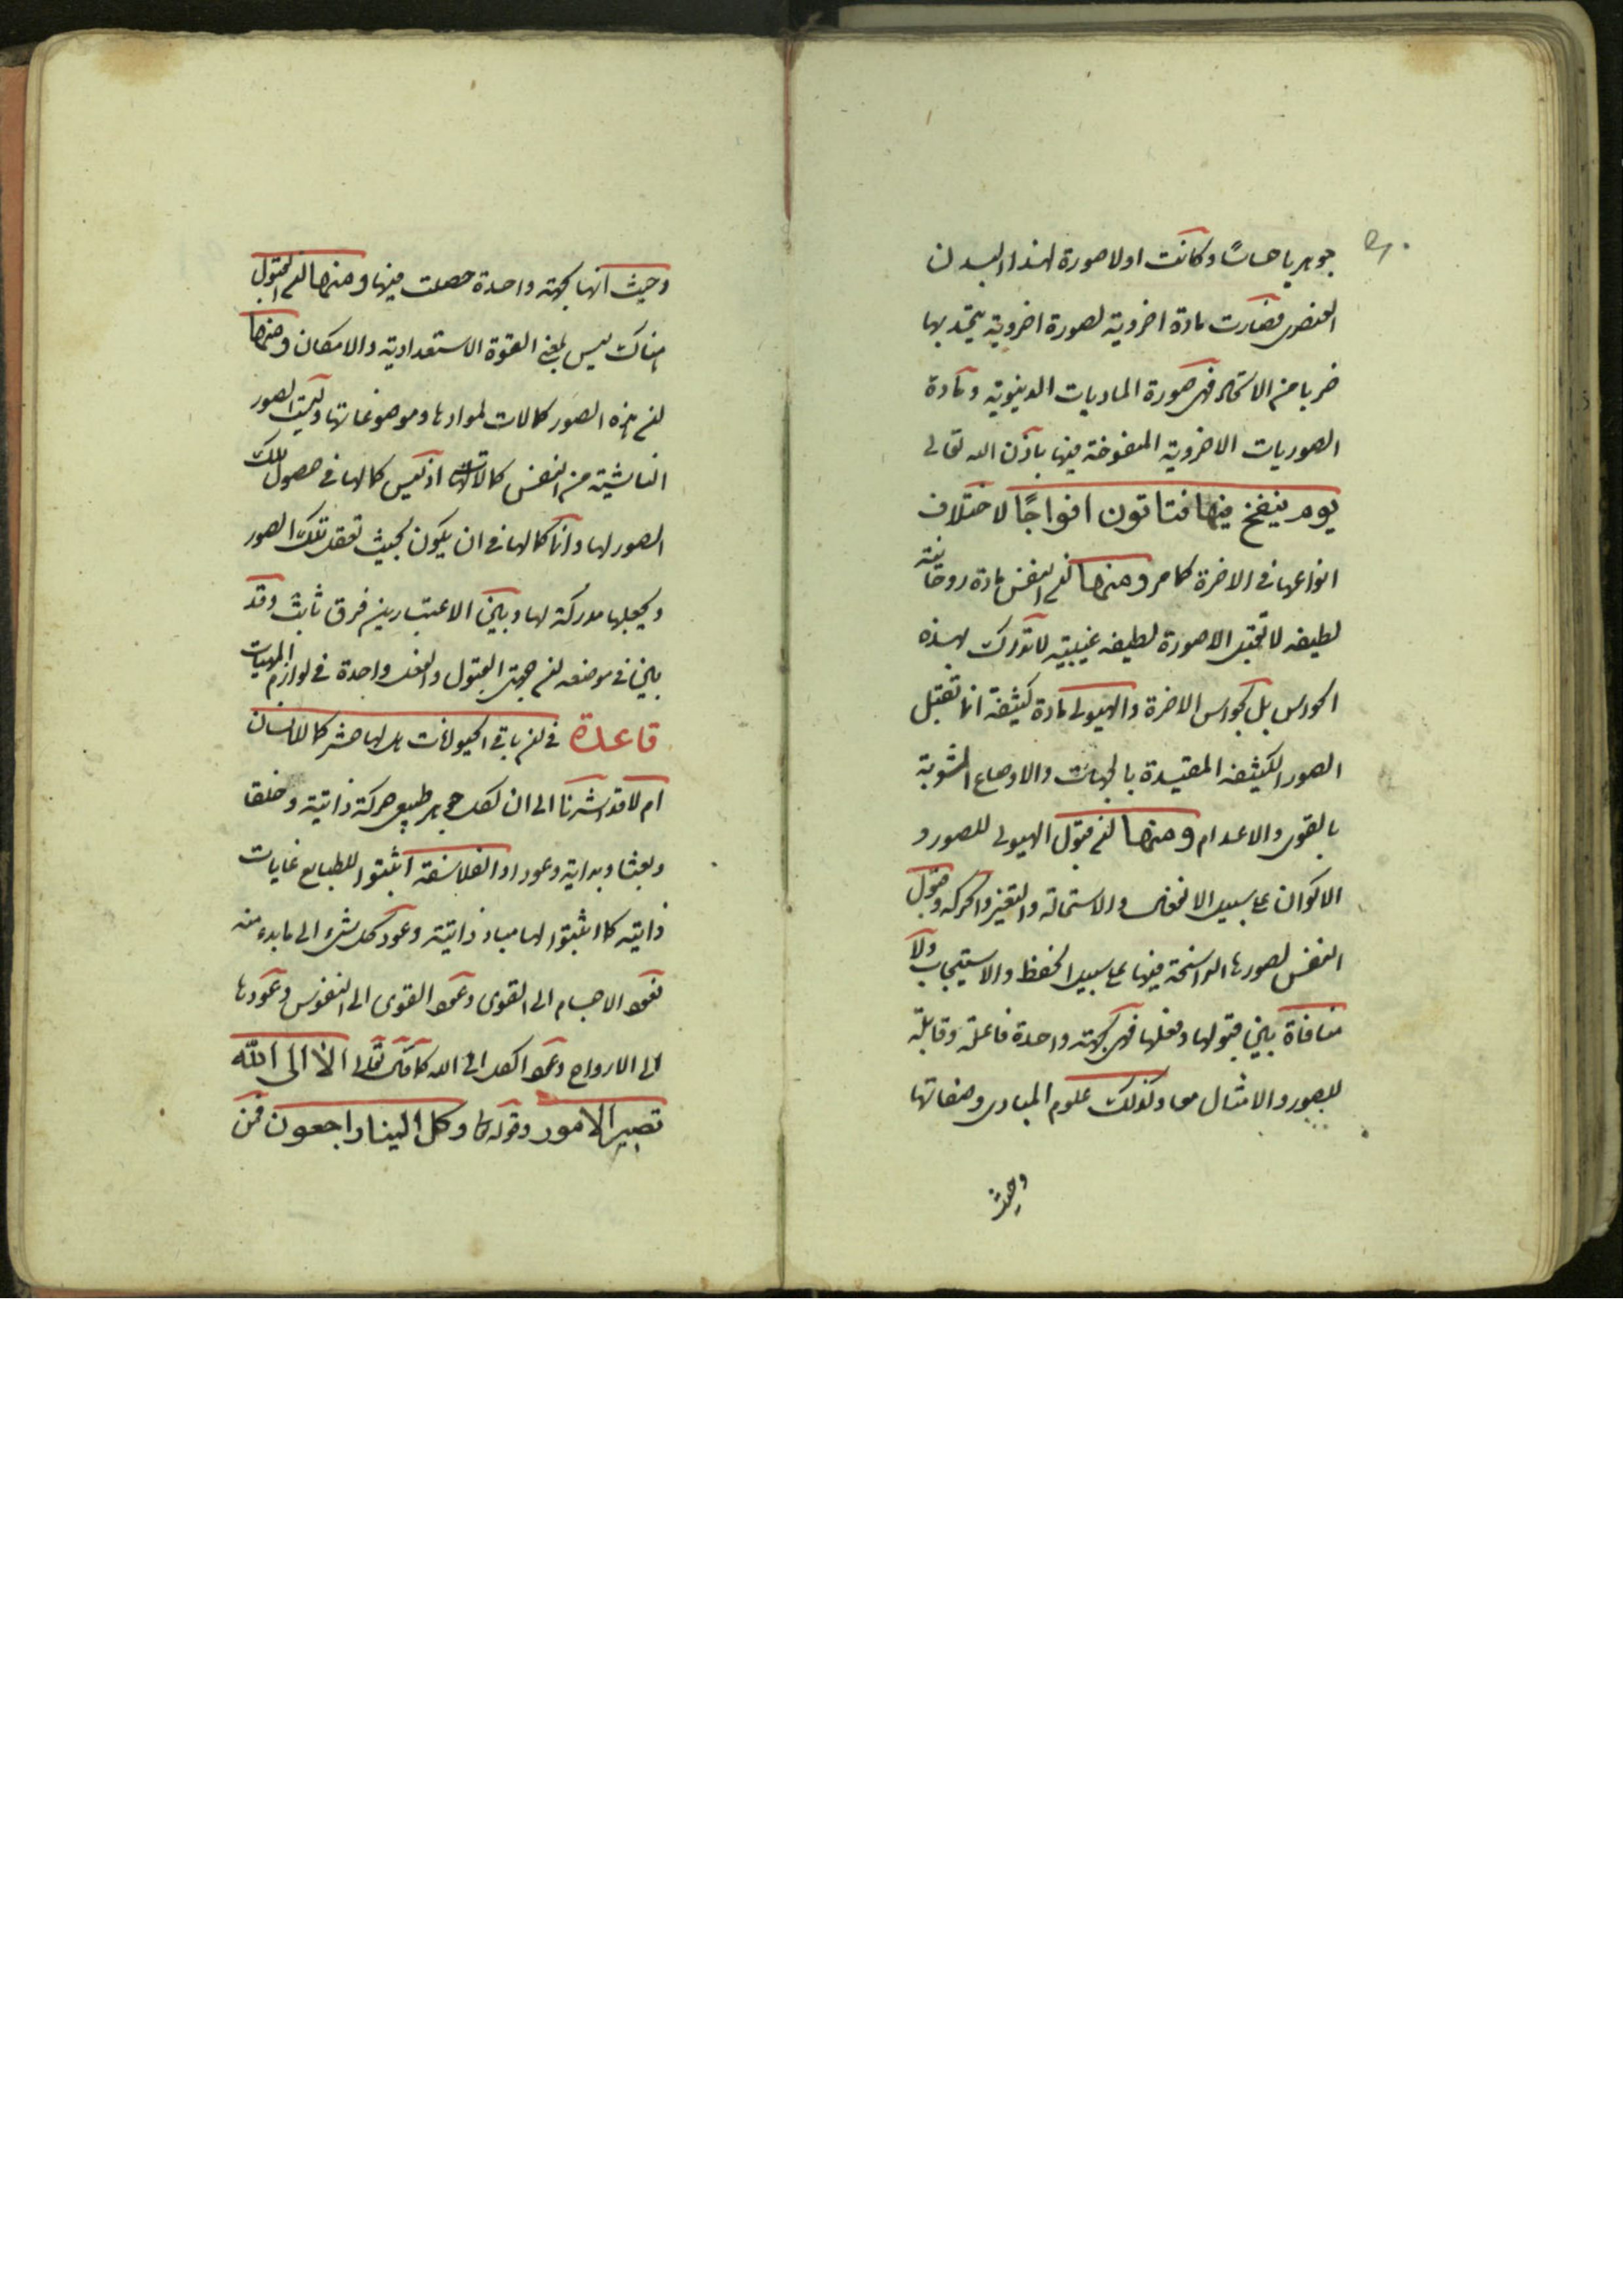 جوهريا حساسًا وكانت اولا صورة لهذا البدن
العنصرى فصارت مادة اخروية لصورة اخروية يتحد بها
ضربا من الاتحاد فهى صورة الماديات الدنيوية ومادة
الصوريات الاخروية المنفوخة فيها باذن الله تعالى
يوم ينفخ فيها فتاتون افواجًا لاختلاف
انواعها فى الاخرة كما مر ومنها ان النفس مادة روحانية
لطيفه لا تقبل الا صورة لطيفه غيبية لا تدرك بهذه
الحواس بل بحواس الاخرة والهيولى مادة كثيفة انما تقبل
الصور الكثيفه المقيدة بالجهات والاوضاع المشوبة
بالقوى والاعدام ومنها ان قبول الهيولى للصور و
الاكوان على سبيل الانفعال والاستحالة والتغير والحركه وقبول
النفس لصورها الراسخة فيها على سبيل الحفظ والاستيجاب ولا
منافاة بين قبولها وفعلها فهى بجهة واحدة فاعلة وقابلة
للصور والامثال معا وكذلك علوم المبادى وصفاتها
وحيث
وحيث انها بجهة واحدة حصلت فيها ومنها ان القبول
هناك ليس بمعنى القوة الاستعدادية والامكان ومنها
ان هذه الصور كمالات لموادها وموضوعاتها وليست الصور
الناشية من النفس كمالاتها اذ ليس كمالها فى حصول تلك
الصور لها وانما كمالها فى ان يكون بحيث تعقل تلك الصور
ويجعلها مدركة لها وبين الاعتبارين فرق ثابت وقد
بين فى موضعه ان جهتى القبول والفعل واحدة فى لوازم المهيات
قاعدة فى ان باقى الحيوانات هل لها حشر كالانسان
ام لا قد اشرنا الى ان لكل جوهر طبيعى حركة ذاتية وخلقا
وبعثا وبداية وعودا والفلاسفة اثبتوا للطبايع غايات
ذاتيه كما اثبتوا لها مباد ذاتية وعود كل شىء الى ما بدء منه
فعود الاجسام الى القوى وعود القوى الى النفوس وعودها
الى الارواح وعود الكل الى الله كما قال تعالى الا الى الله
تصير الامور وقوله تعالى وكل الينا راجعون فمن